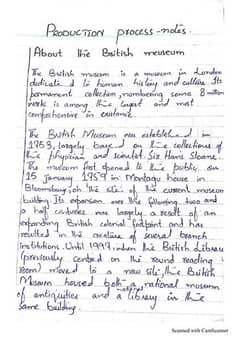 PRODUCTION process-notes.
About the British meuseum
The British museum is a museum in London
dedicated to human history and culture. Its
permanent collection, numbering some 8 million
works is among the largest and most
comprehensive in existence
The British Museum was established in
1753, largely based on the collections of
the physician and scientist Sir Hans Sloane.
The museum first opened to the public on
15 january 1759 in Montagu house in
Bloomsbury, on the site of the current museum
building. Its expansion over the following two and
a half centuries was largely a result of an
expanding British colonial footprint and has
resulted in the creation of several branch
institutions. Until 1997, when the British Library
(previously centred on the round reading
room) moved to a new site, the British
Museum housed both a national museum
of antiquities and a library in the
same building.
Scanned with CamScanner